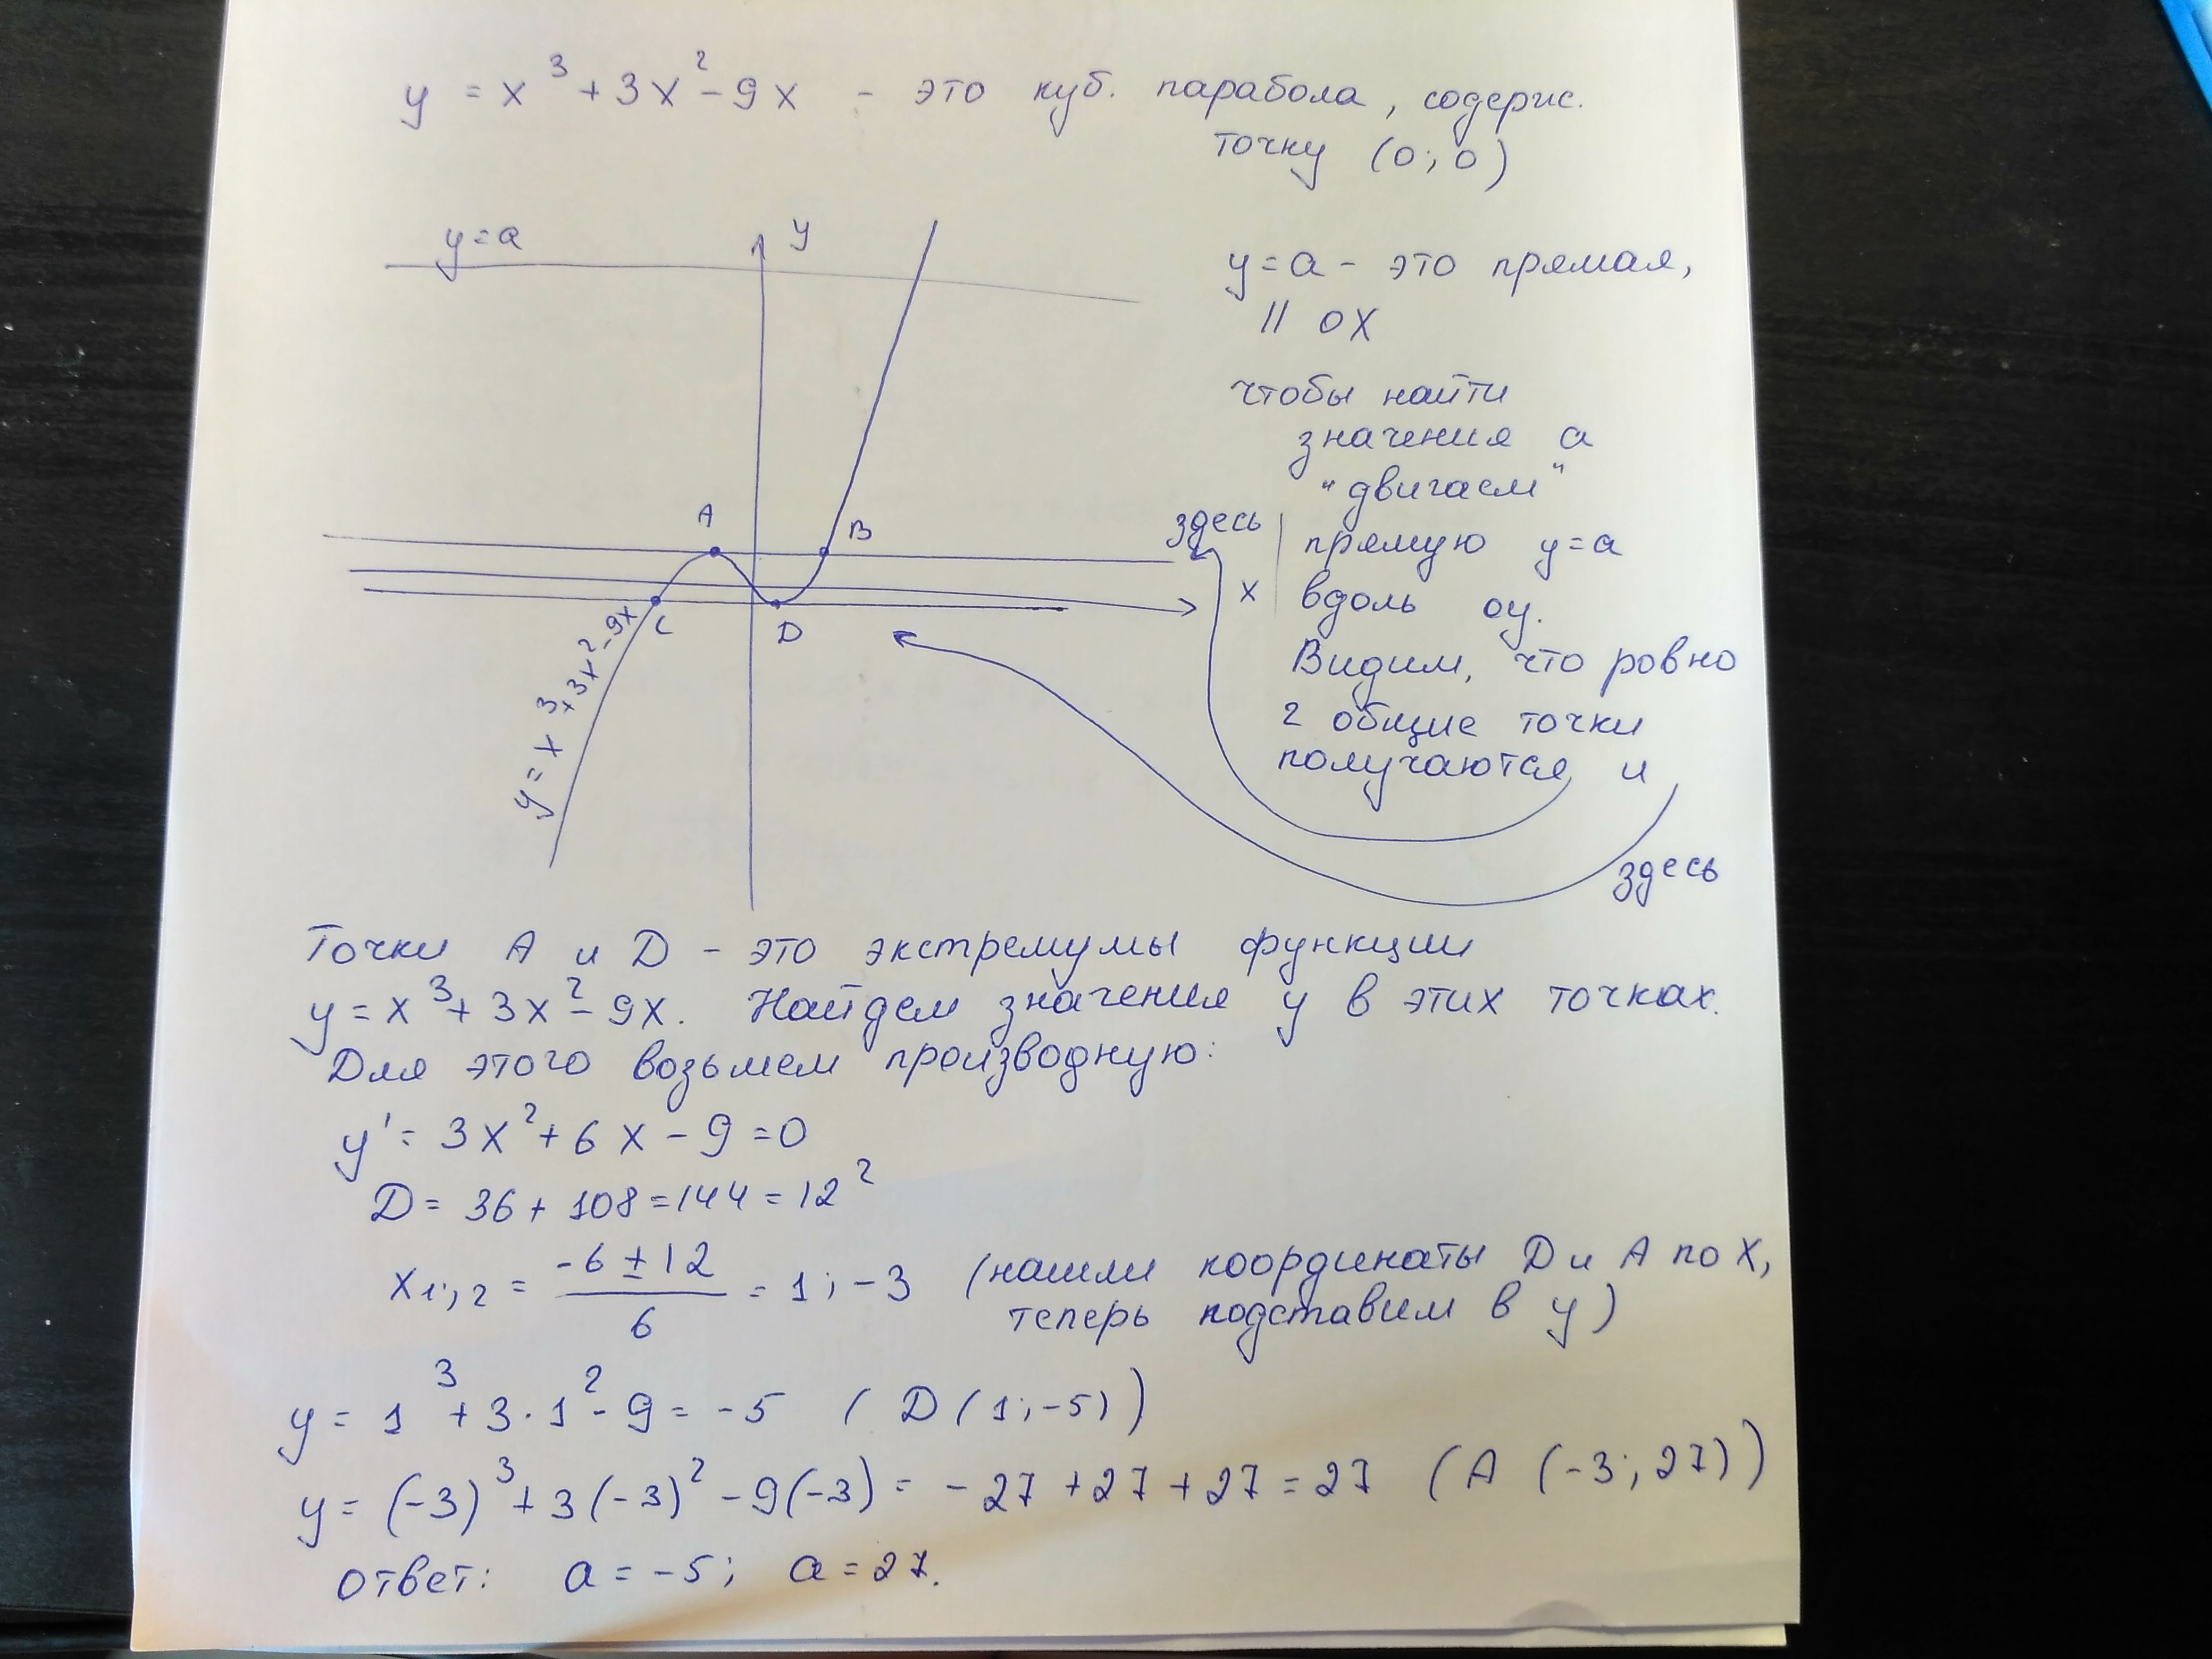 y = x³ + 3x² - 9x - это куб. парабола, содерж.
точку (0; 0)
y = a
y
y = a - это прямая,
|| ОХ
чтобы найти
значения а
"двигаем"
прямую y = a
вдоль оу.
Видим, что ровно
2 общие точки
получаются и
здесь
здесь
A
B
x
C
D
y = x³ + 3x² - 9x
Точки А и D - это экстремумы функции
y = x³ + 3x² - 9x. Найдем значения y в этих точках.
Для этого возьмем производную:
y' = 3x² + 6x - 9 = 0
D = 36 + 108 = 144 = 12²
x₁;₂ = (-6 ± 12)/6 = 1; -3 (нашли координаты D и А по Х,
теперь подставим в y)
y = 1³ + 3·1² - 9 = -5 (D (1; -5))
y = (-3)³ + 3(-3)² - 9(-3) = -27 + 27 + 27 = 27 (A (-3; 27))
ответ: a = -5; a = 27.